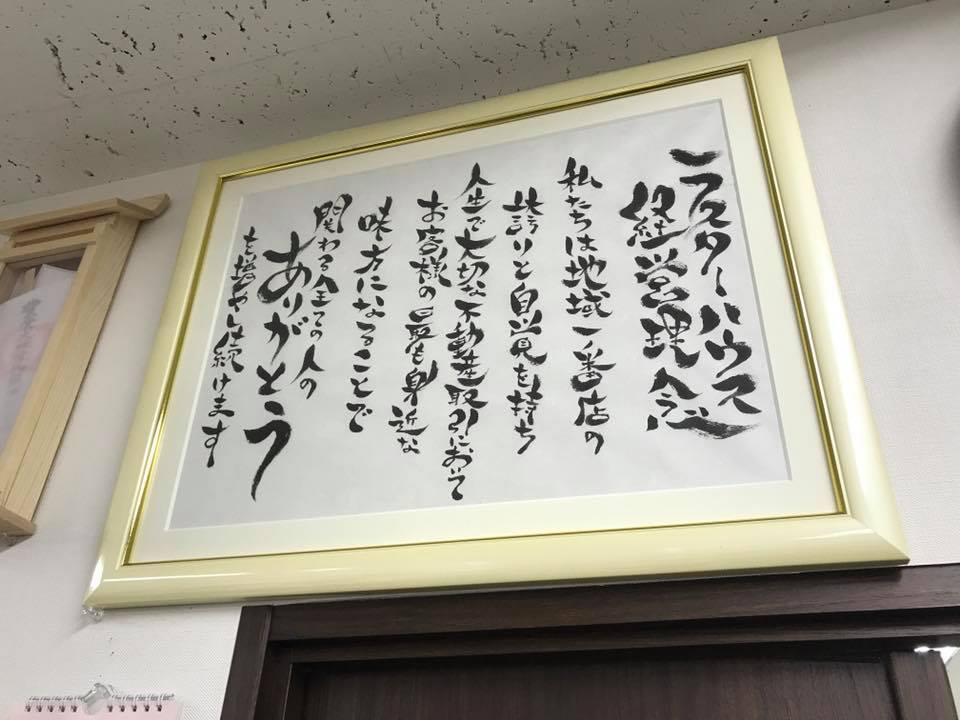 ラスターハウス
経営理念
私たちは地域一番店の
誇りと自覚を持ち
人生で大切な不動産取引において
お客様の最も身近な
味方になることで
関わる全ての人の
ありがとう
を増やし続けます